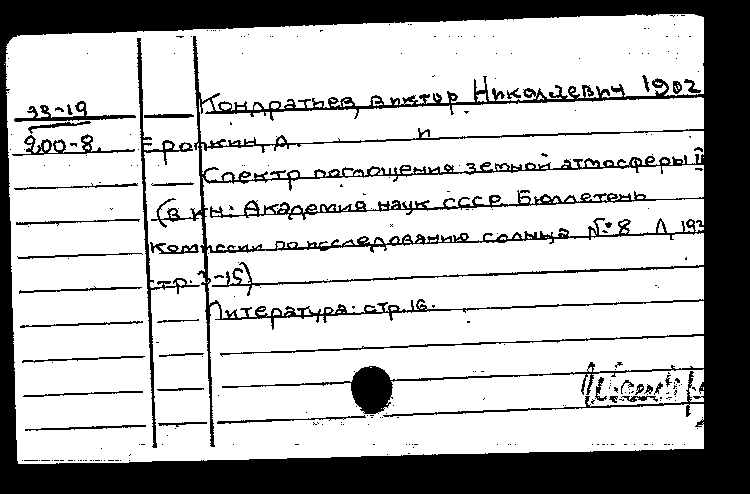 33-19
Кондратьев, Виктор Николаевич 1902
200-8.
Еропкин, Д. и
Спектр поглощения земной атмосферы II
(В кн: Академия наук СССР Бюллетень
комиссии по исследованию солнца №8 Л, 193
стр. 3-15)
Литература: стр. 16.